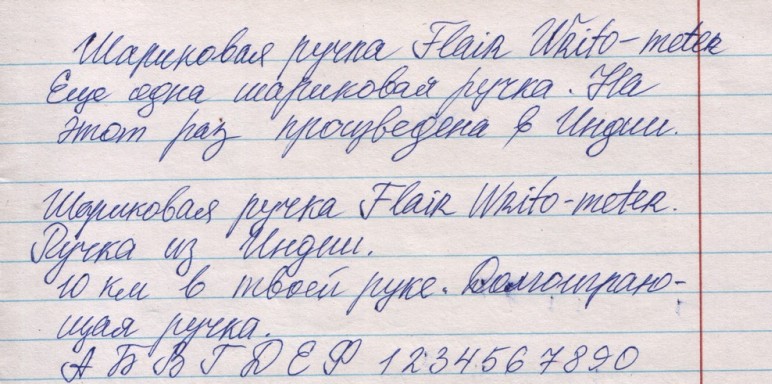 Шариковая ручка Flair Writo-meter
Еще одна шариковая ручка. На
этот раз произведена в Индии.
Шариковая ручка Flair Writo-meter.
Ручка из Индии.
10 км в твоей руке. Долгоиграю-
щая ручка.
А Б В Г Д Е Ф 1 2 3 4 5 6 7 8 9 0